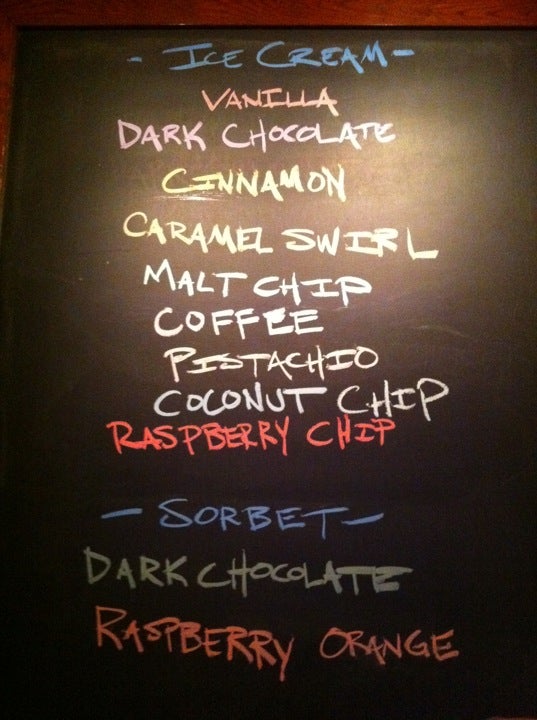 - ICE CREAM -
VANILLA
DARK CHOCOLATE
CINNAMON
CARAMEL SWIRL
MALT CHIP
COFFEE
PISTACHIO
COCONUT CHIP
RASPBERRY CHIP
- SORBET -
DARK CHOCOLATE
RASPBERRY ORANGE